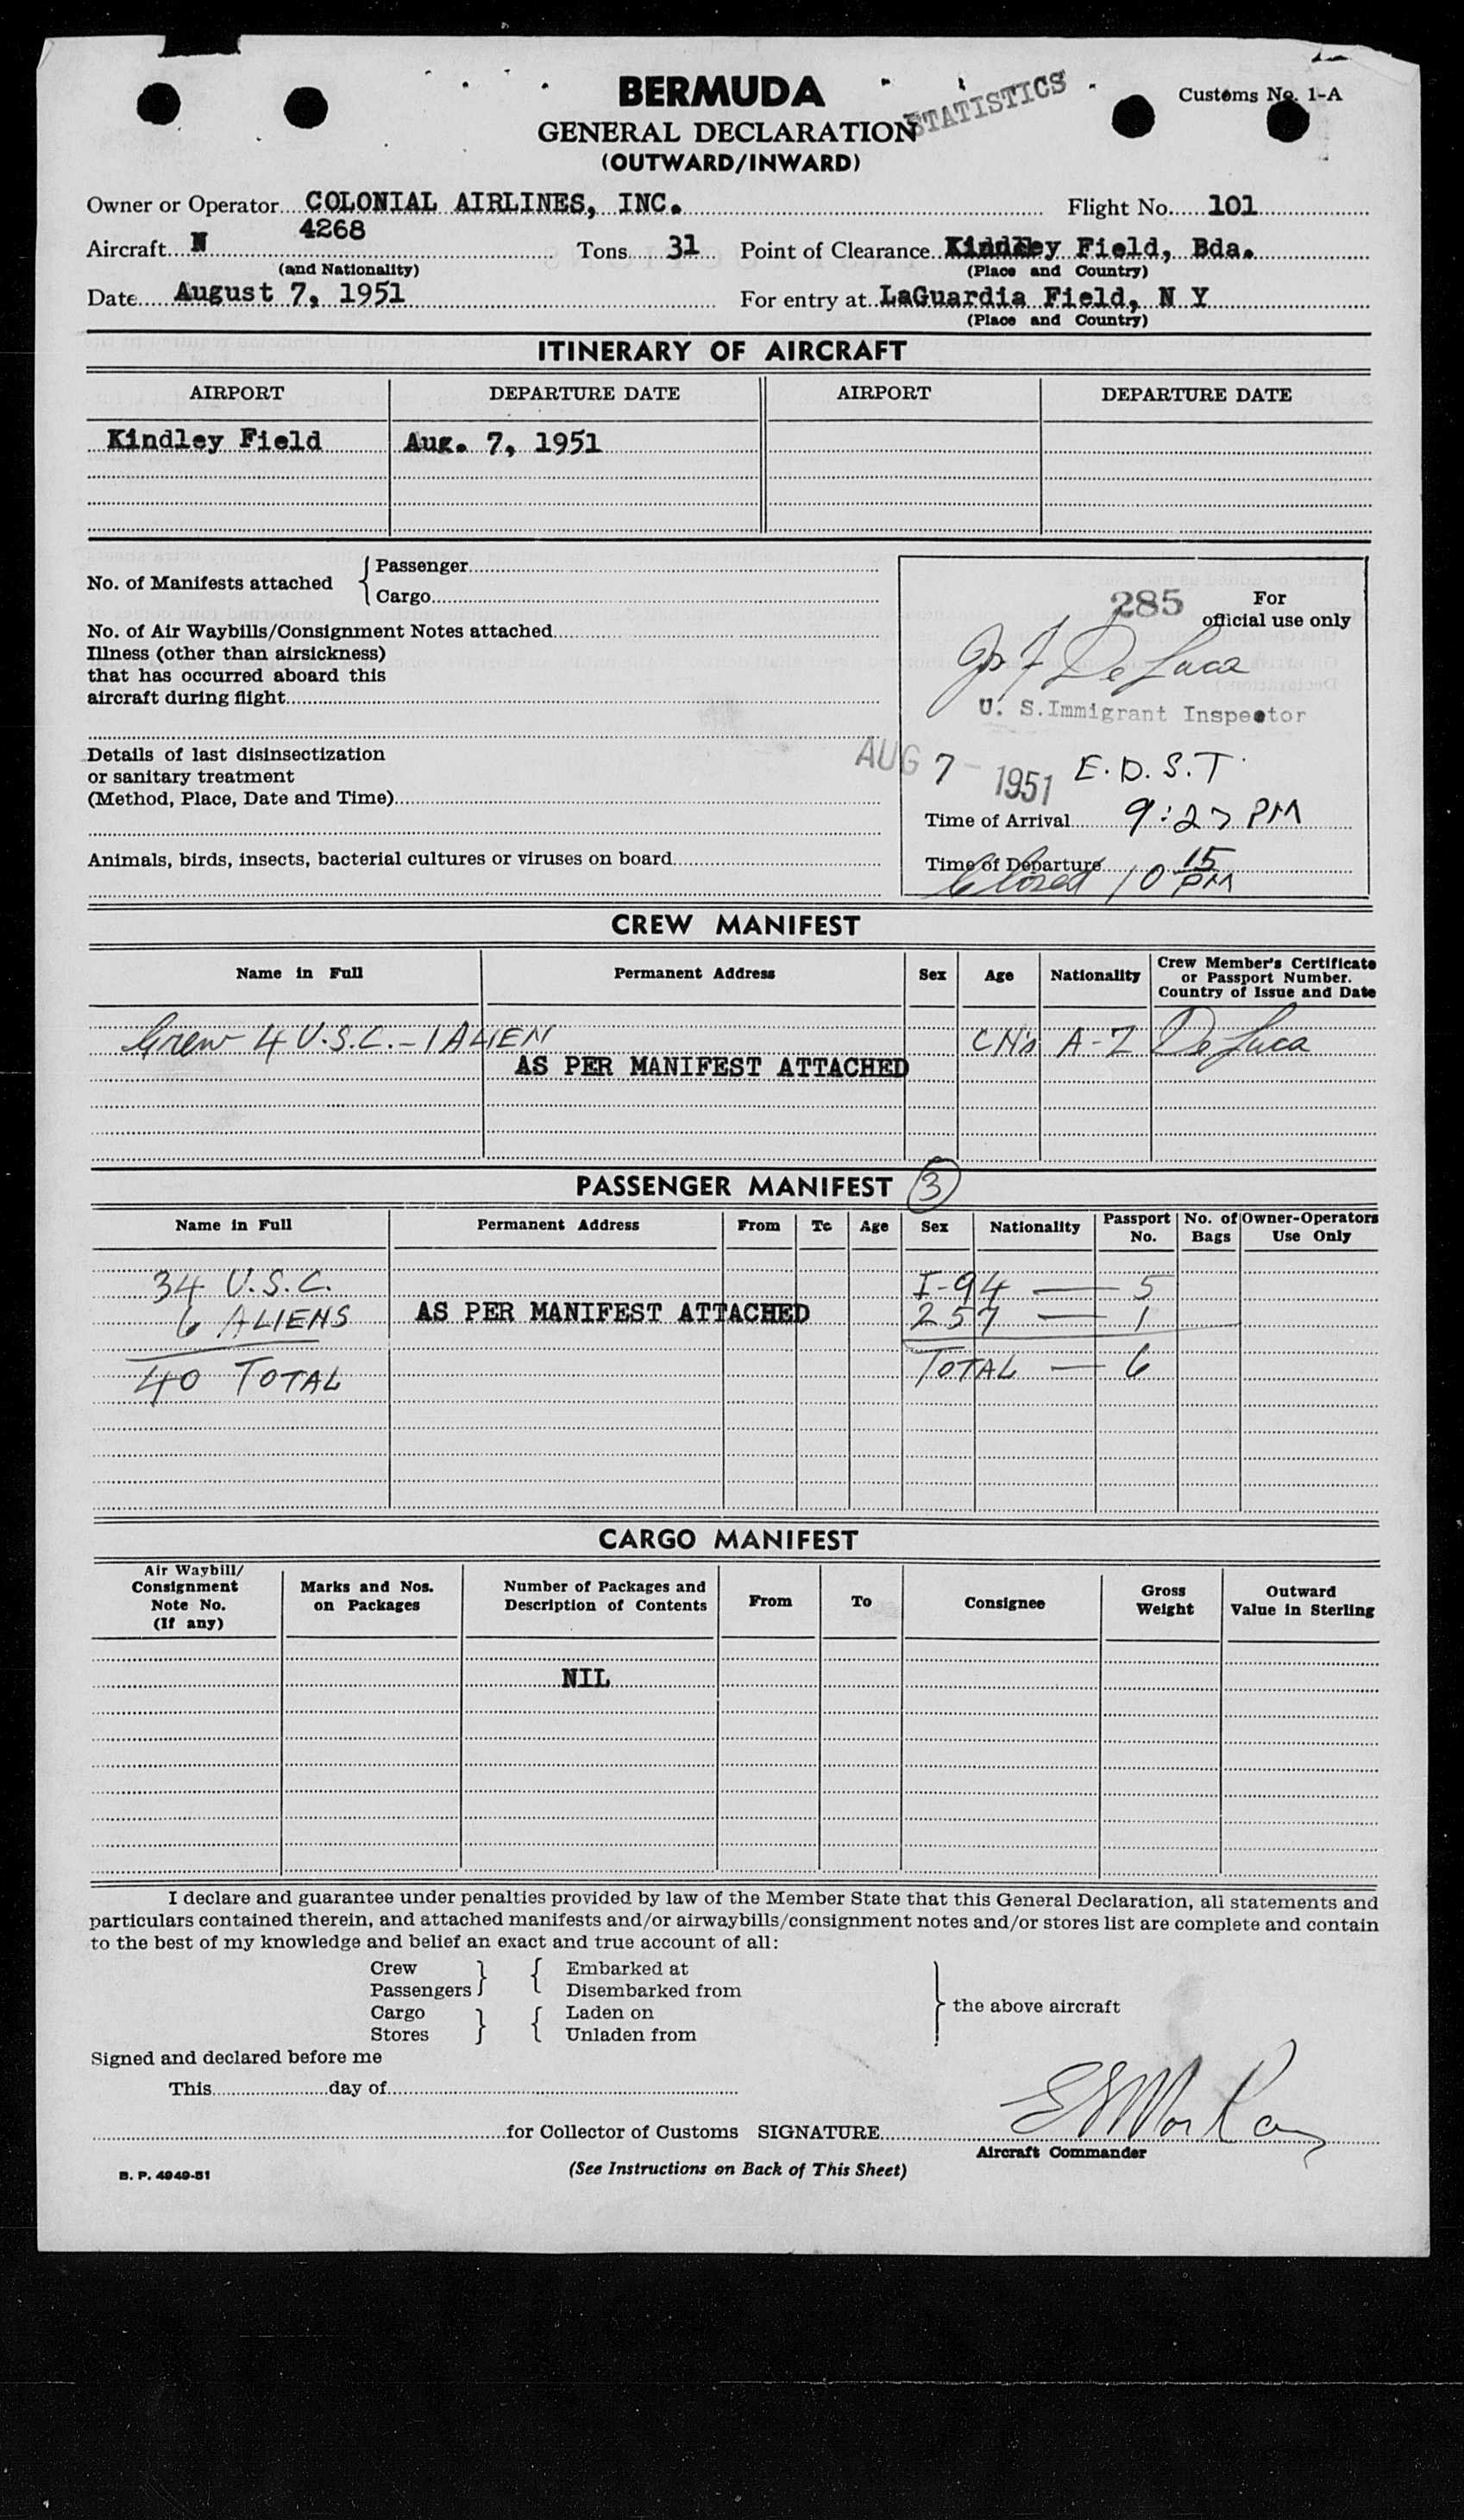 BERMUDA
STATISTICS
Customs No. 1-A
GENERAL DECLARATION
(OUTWARD/INWARD)
Owner or Operator COLONIAL AIRLINES, INC. Flight No. 101
Aircraft N 4268 Tons 31 Point of Clearance Kindley Field, Bda.
(and Nationality) (Place and Country)
Date August 7, 1951 For entry at LaGuardia Field, N Y
(Place and Country)
ITINERARY OF AIRCRAFT
AIRPORT DEPARTURE DATE AIRPORT DEPARTURE DATE
Kindley Field Aug. 7, 1951
No. of Manifests attached { Passenger
Cargo
No. of Air Waybills/Consignment Notes attached
Illness (other than airsickness)
that has occurred aboard this
aircraft during flight
Details of last disinsectization
or sanitary treatment
(Method, Place, Date and Time)
Animals, birds, insects, bacterial cultures or viruses on board
285 For
official use only
Jos F De Luca
U. S. Immigrant Inspector
AUG 7 - 1951 E.D.S.T.
Time of Arrival 9:27 PM
Time of Departure
Closed 10 15 PM
CREW MANIFEST
Name in Full Permanent Address Sex Age Nationality Crew Member's Certificate
or Passport Number.
Country of Issue and Date
Crew 4 U.S.C. - 1 ALIEN CN's A-Z De Luca
AS PER MANIFEST ATTACHED
PASSENGER MANIFEST 3
Name in Full Permanent Address From To Age Sex Nationality Passport No. No. of Bags Owner-Operators Use Only
34 U.S.C. I-94 — 5
6 ALIENS AS PER MANIFEST ATTACHED 257 — 1
40 TOTAL TOTAL — 6
CARGO MANIFEST
Air Waybill/
Consignment
Note No.
(If any)
Marks and Nos.
on Packages
Number of Packages and
Description of Contents
From To Consignee
Gross
Weight
Outward
Value in Sterling
NIL
I declare and guarantee under penalties provided by law of the Member State that this General Declaration, all statements and
particulars contained therein, and attached manifests and/or airwaybills/consignment notes and/or stores list are complete and contain
to the best of my knowledge and belief an exact and true account of all:
Crew } { Embarked at
Passengers Disembarked from
Cargo } { Laden on } the above aircraft
Stores Unladen from
Signed and declared before me
This day of
for Collector of Customs SIGNATURE
Aircraft Commander
B. P. 4949-51
(See Instructions on Back of This Sheet)